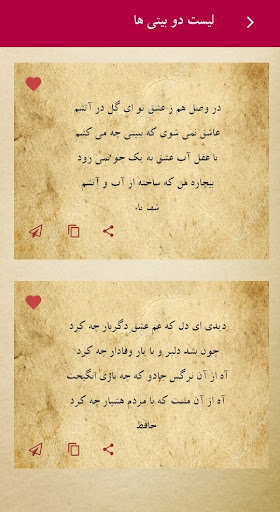 لیست دو بیتی ها
در وصل هم ز عشق تو ای گل در آتشم
عاشق نمی شوی که ببینی چه می کشم
با عقل آب عشق به یک جو نمی رود
بیچاره من که ساخته از آب و آتشم
دیدی ای دل که غم عشق دگربار چه کرد
چون بشد دلبر و با یار وفادار چه کرد
آه از آن نرگس جادو که چه بازی انگیخت
آه از آن مست که با مردم هشیار چه کرد
حافظ